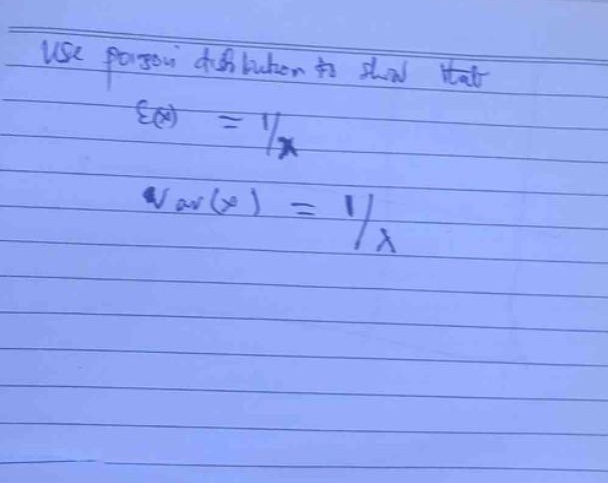 Use poison distribution to show that
E(x) = 1/λ
Var(x) = 1/λ